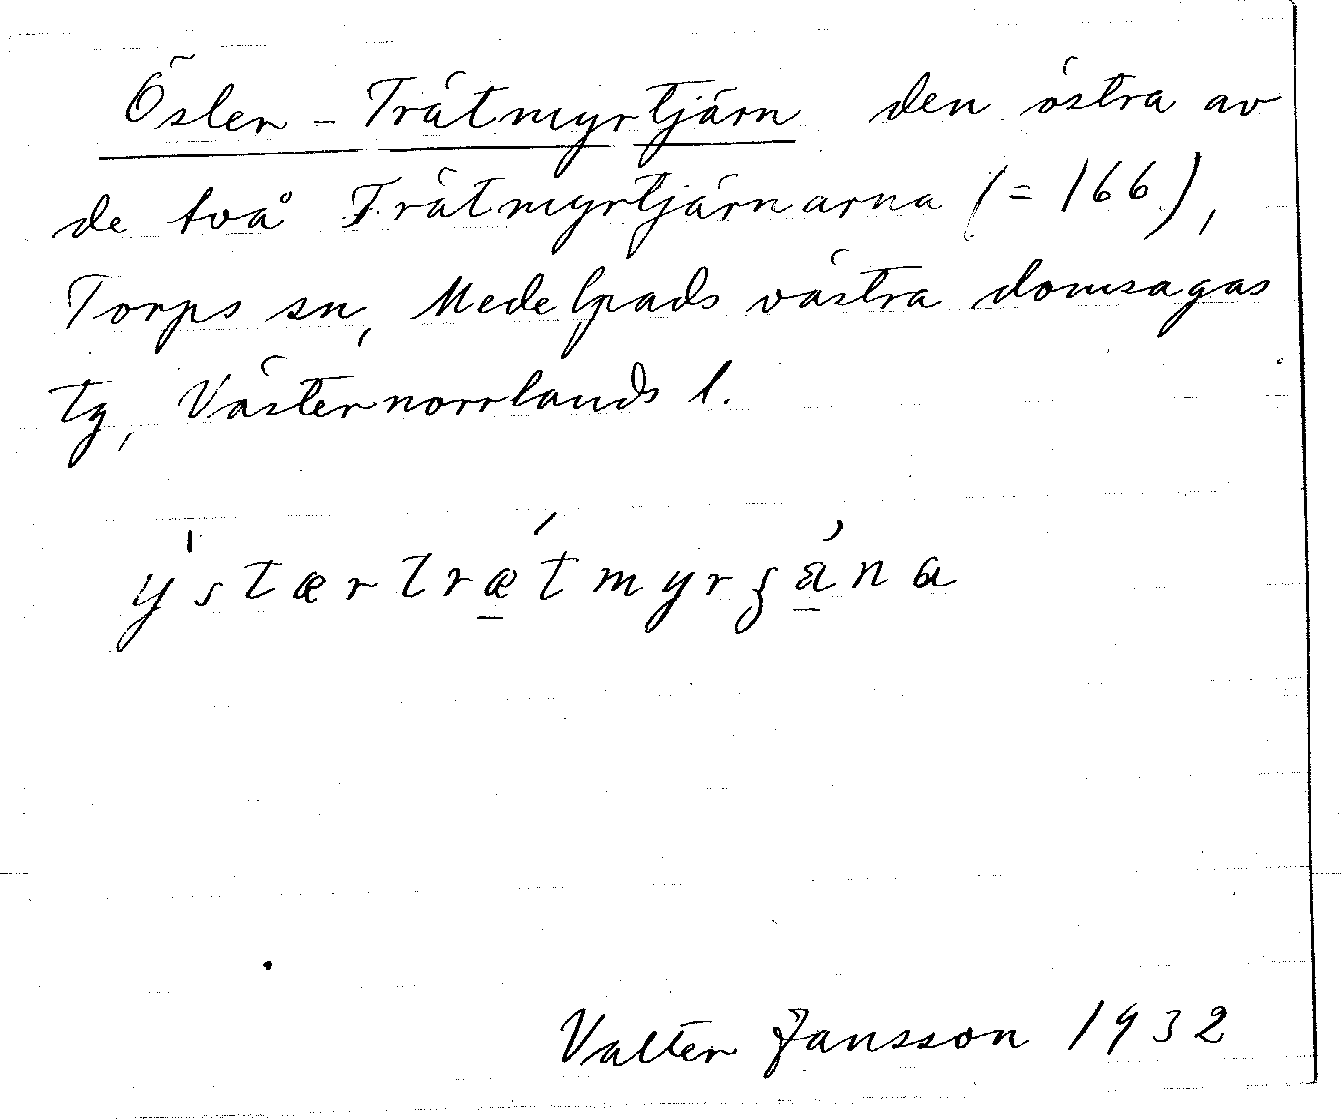 Öster-Trätmyrtjärn den östra av
de två Trätmyrtjärnarna (= 166),
Torps sn, Medelpads västra domsagas
tg, Västernorrlands l.
ýstærtrǽ̱tmyrʒä̱́na
Valter Jansson 1932